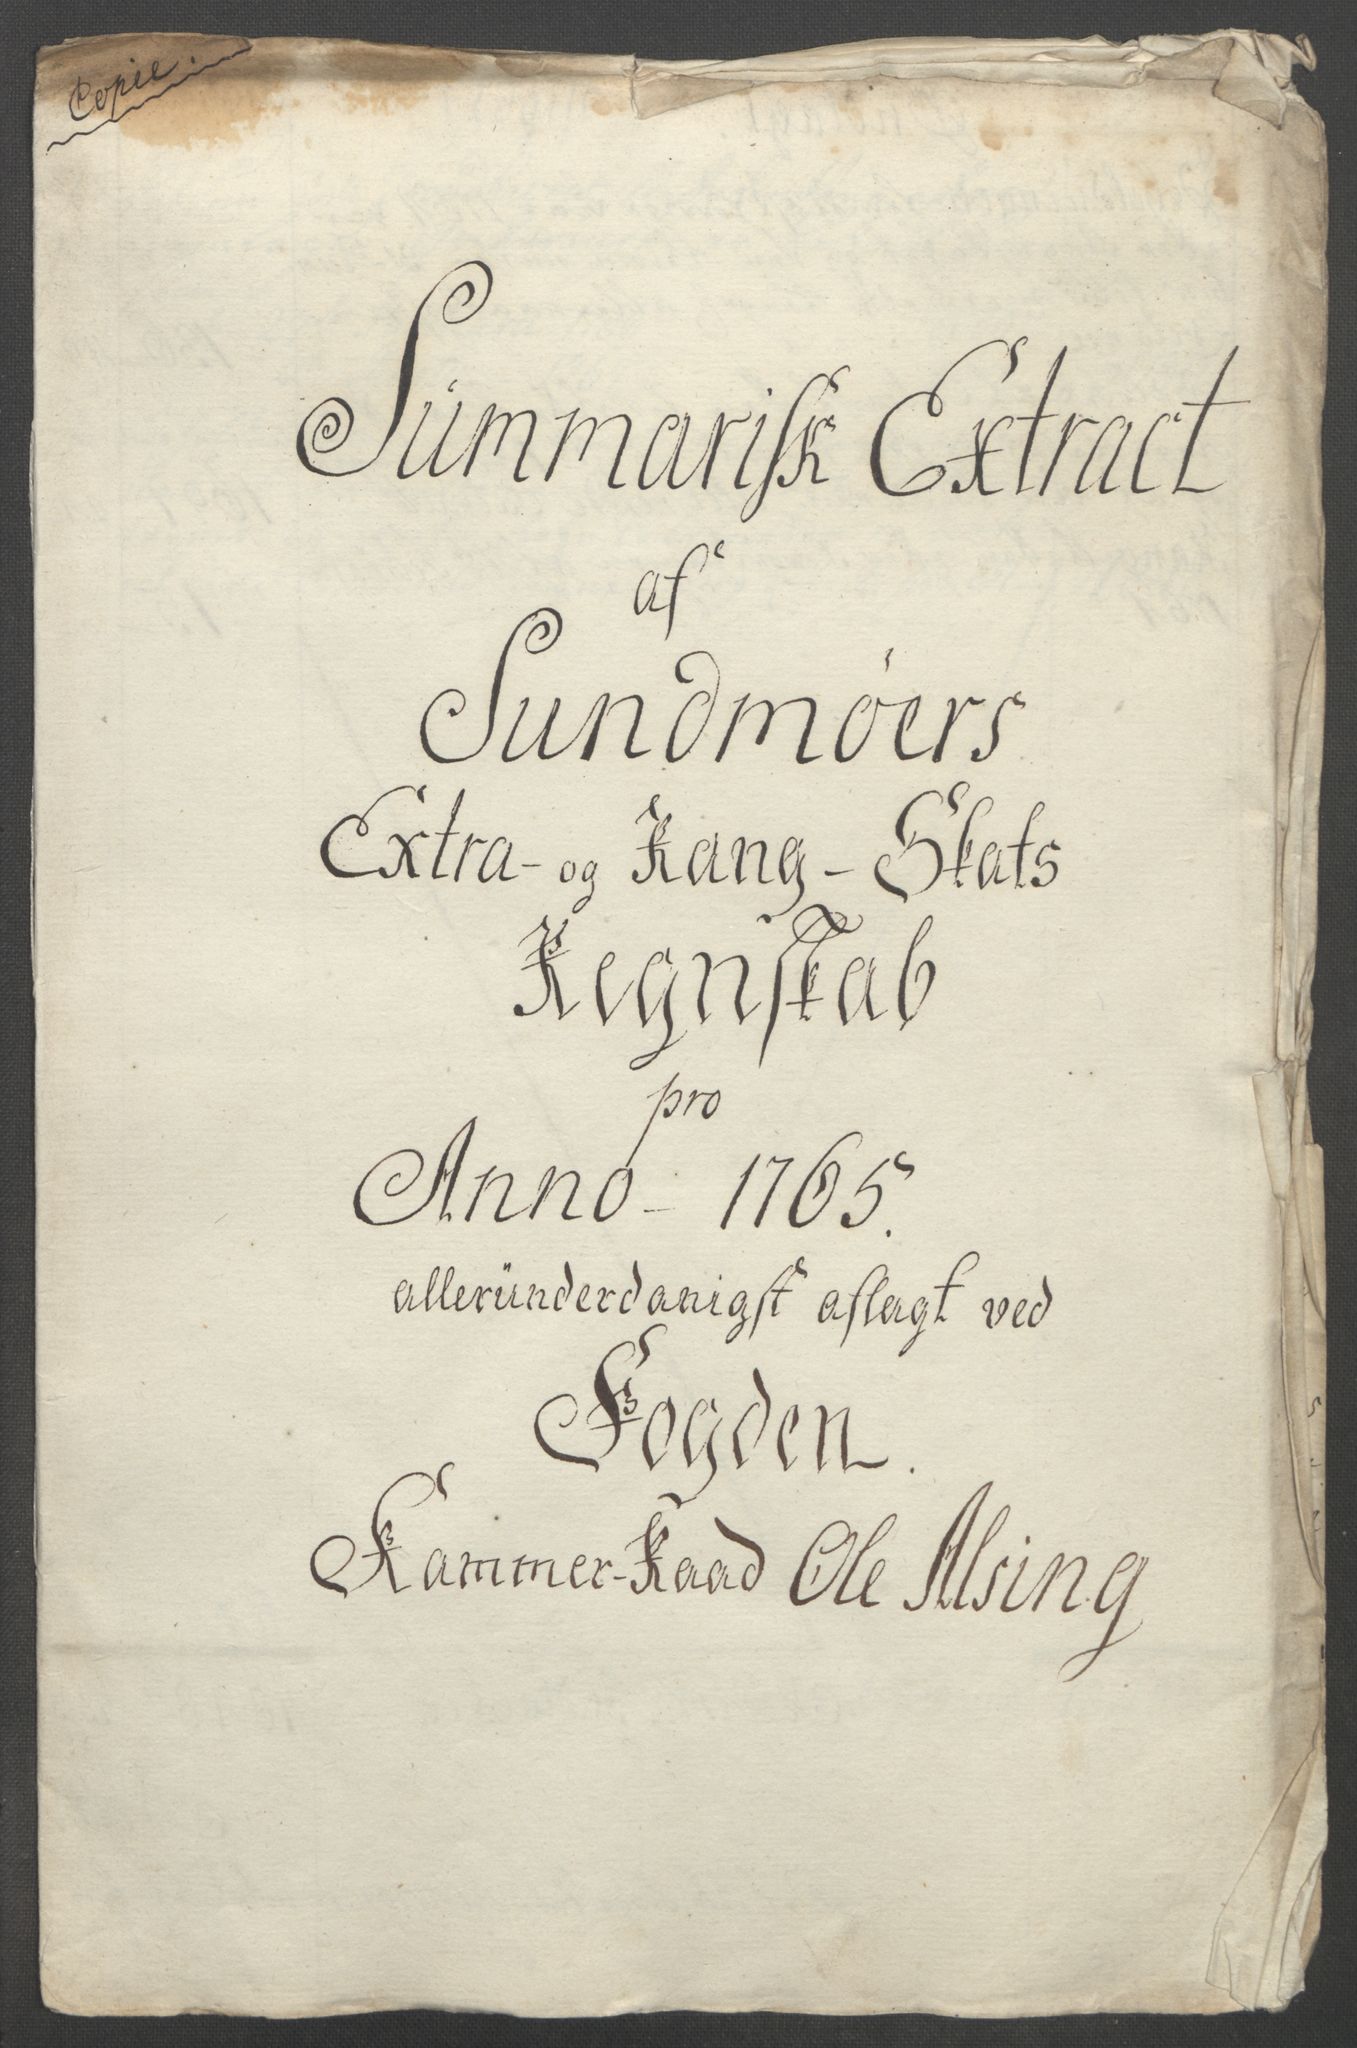 Copie.
Sümmarisk Extract
af
Sundmøers
Extra- og Rang-Skats
Regnskab
pro
Anno - 1765.
alleründerdanigst aflagt ved
Fogden.
Kammer-Raad Ole Alsing